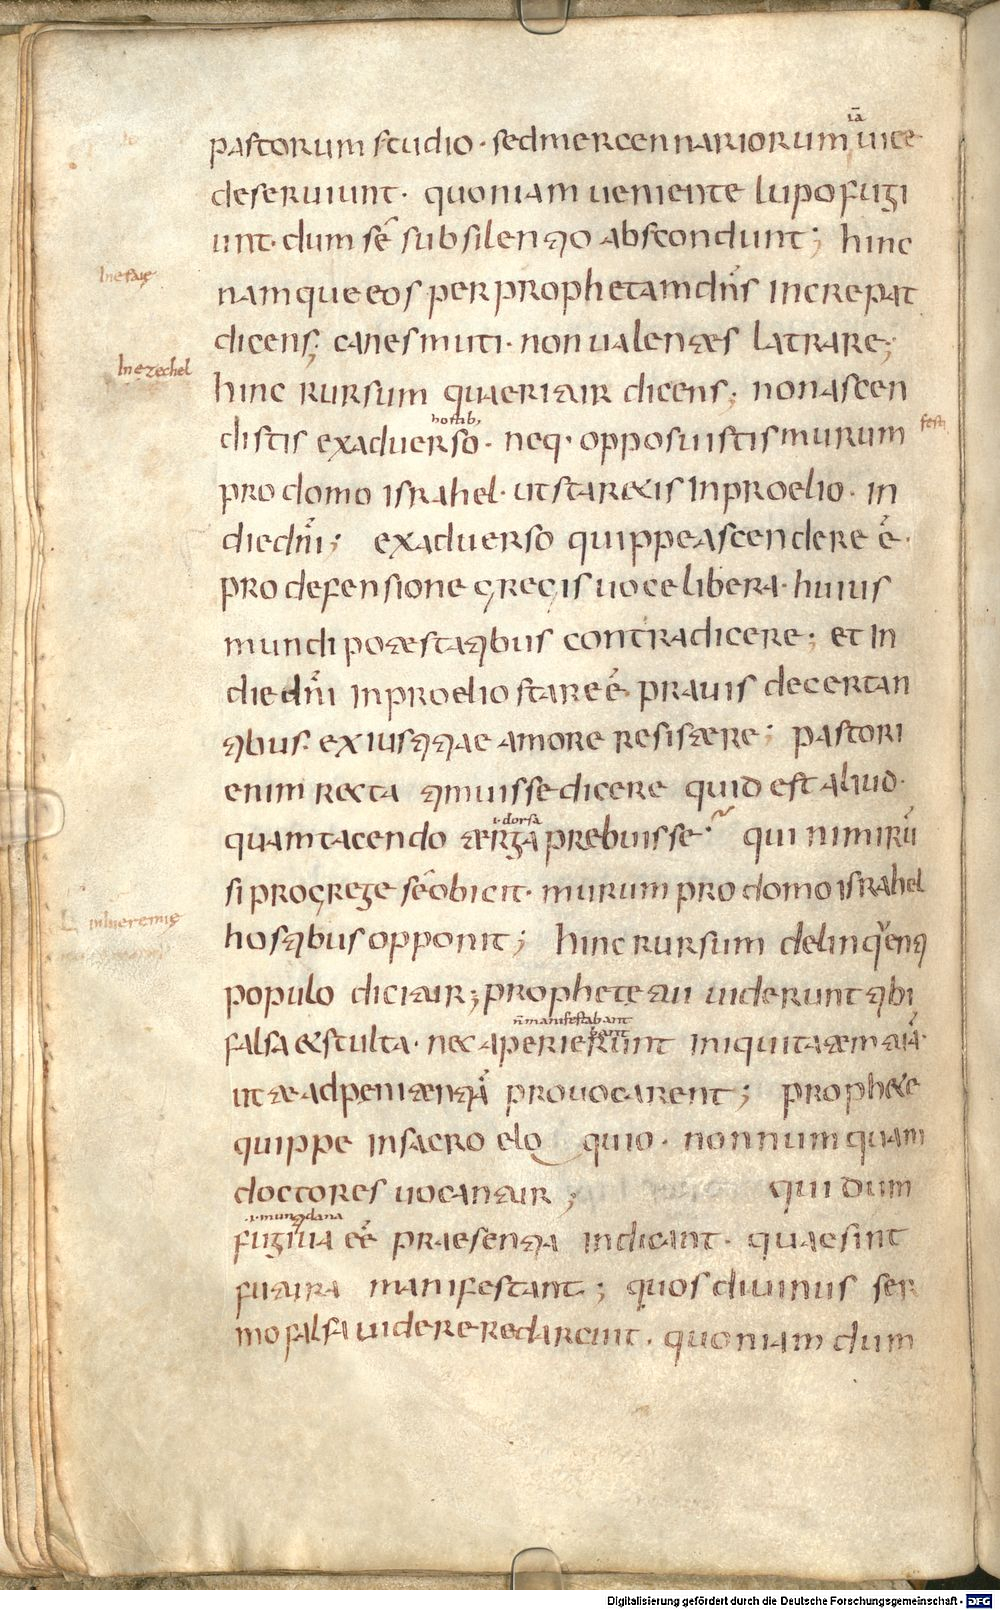 iā
pastorum studio · sed mercennariorum uice
deseruiunt · quoniam ueniente lupo fugi
unt · dum sē sub silentio abscondunt ; hinc
In esaię
namque eos per prophetam dn̄s increpat
dicens ; canes muti · non ualentes latrare ;
In ezechel
hinc rursum quaeritur dicens ; non ascen
hostib;
distis ex aduerso · neq· opposuistis murum
pro domo israhel · ut staretis in proelio · in
die dn̄i ; ex aduerso quippe ascendere ē ·
pro defensione gregis uoce libera · huius
mundi potestatibus contradicere ; et in
die dn̄i in proelio stare ē · prauis decertan
tibus · ex iustitiae amore resistere ; pastori
enim recta timuisse dicere quid est aliud ·
.i. dorsa
quam tacendo terga prebuisse · qui nimirū
si pro grege sē obicit · murum pro domo israhel
in hieremię
hostibus opponit ; hinc rursum delinquenti
populo dicitur ; prophetę tui uiderunt tibi
n̄ manifestabant
bant
falsa et stulta · nec aperierunt iniquitatem tuā ·
ut te ad penitentiā prouocarent ; prophetę
quippe in sacro elo quio · nonnumquam
doctores uocantur ; qui dum
.i. mundana
fugitiua eē praesentia indicant · quae sint
futura manifestant ; quos diuinus ser
mo falsa uidere redarguit · quoniam dum
Digitalisierung gefördert durch die Deutsche Forschungsgemeinschaft - DFG